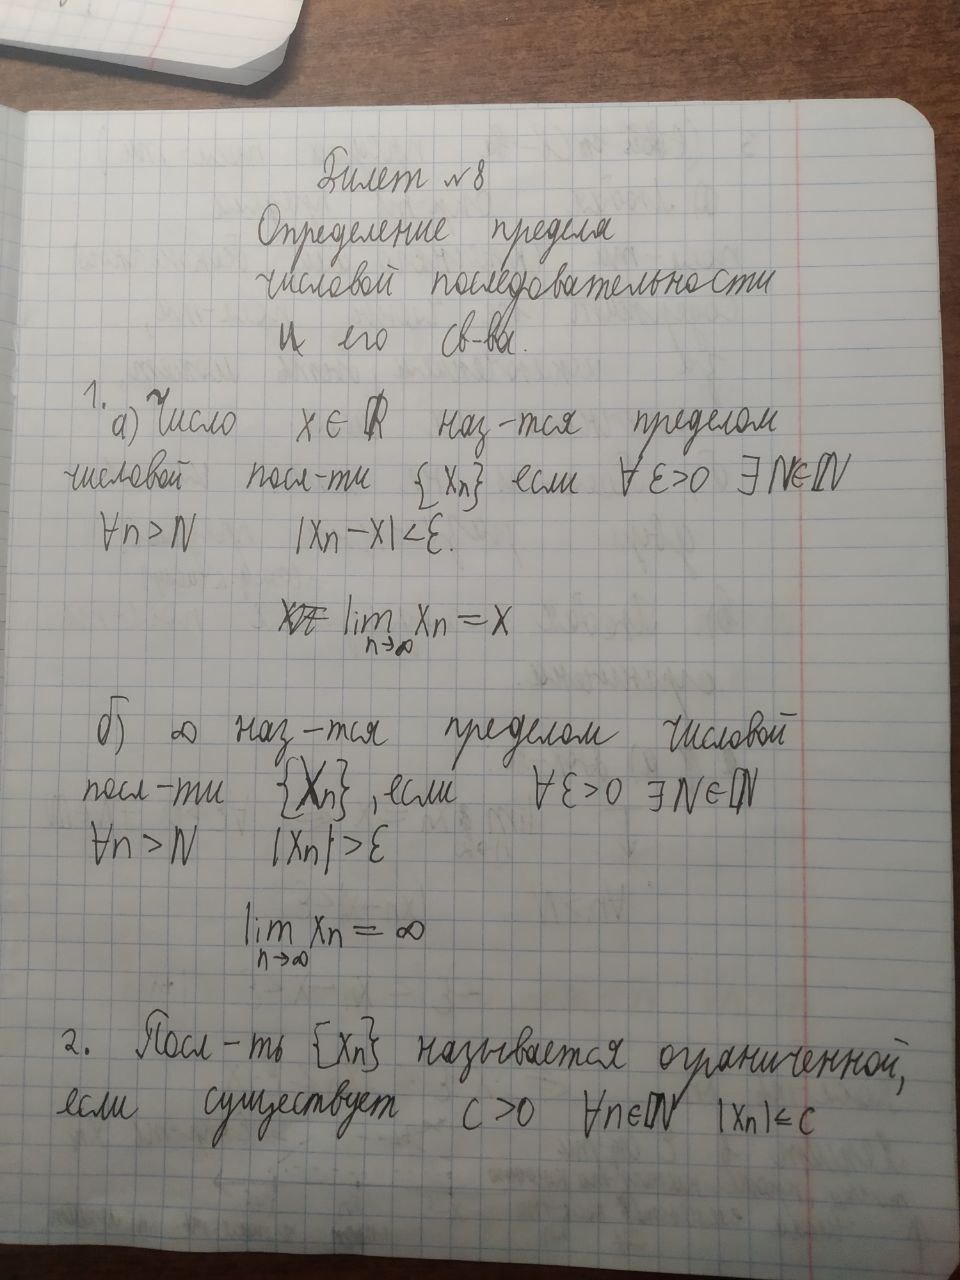 Билет №8
Определение предела
числовой последовательности
и его св-ва.
1.
а) Число x ∈ ℝ наз-тся пределом
числовой посл-ти {xn} если ∀ ε>0 ∃ N∈ℕ
∀n > N |xn − x| < ε.
lim xn = x
n→∞
б) ∞ наз-тся пределом числовой
посл-ти {xn}, если ∀ ε>0 ∃ N∈ℕ
∀n > N |xn| > ε
lim xn = ∞
n→∞
2. Посл-ть {xn} называется ограниченной,
если существует c > 0 ∀n∈ℕ |xn| ≤ c